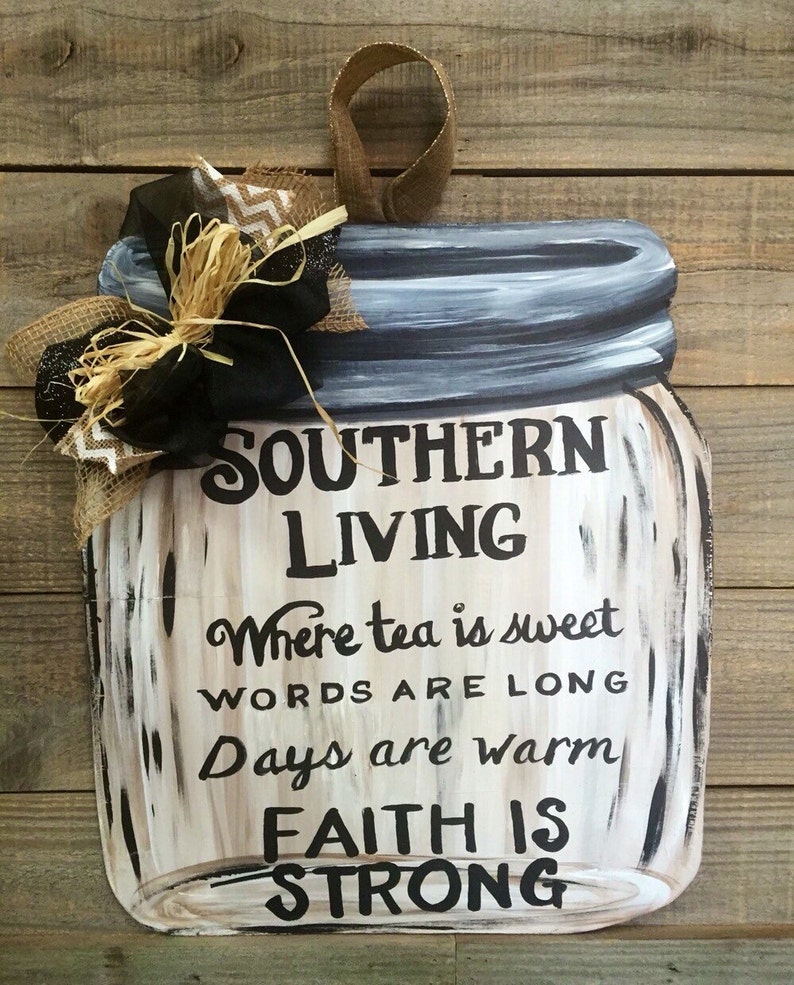 SOUTHERN
LIVING
Where tea is sweet
WORDS ARE LONG
Days are warm
FAITH IS
STRONG